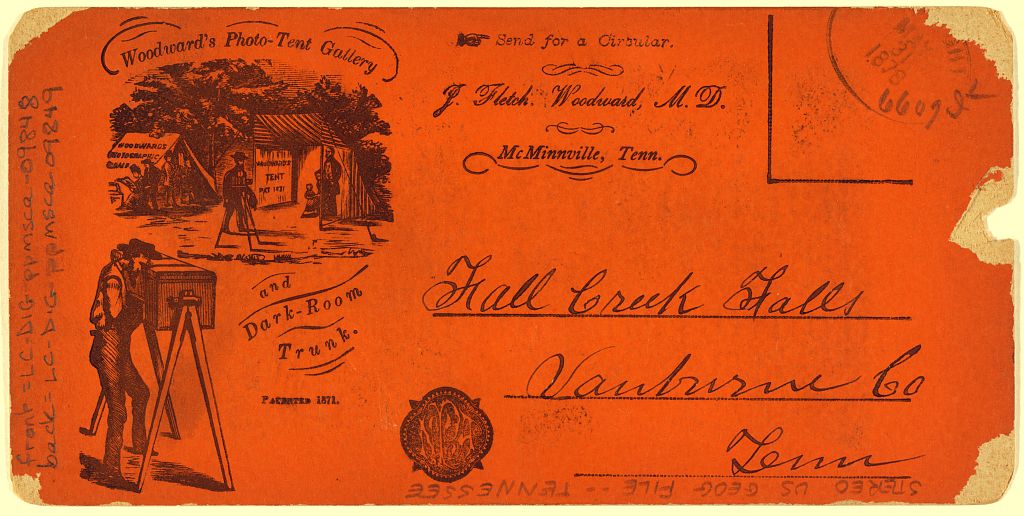 Woodward's Photo-Tent Gallery
WOODWARD'S
PHOTOGRAPHIC
CAMP
WOODWARD'S
TENT
PAT 1871
and
Dark-Room
Trunk.
PATENTED 1871.
Send for a Circular.
J. Fletch. Woodward, M. D.
McMinnville, Tenn.
1878
6609
Fall Creek Falls
Vanburne Co
Tenn
STEREO US GEOG FILE -- TENNESSEE
front = LC-DIG-ppmsca-09848
back = LC-DIG-ppmsca-09849